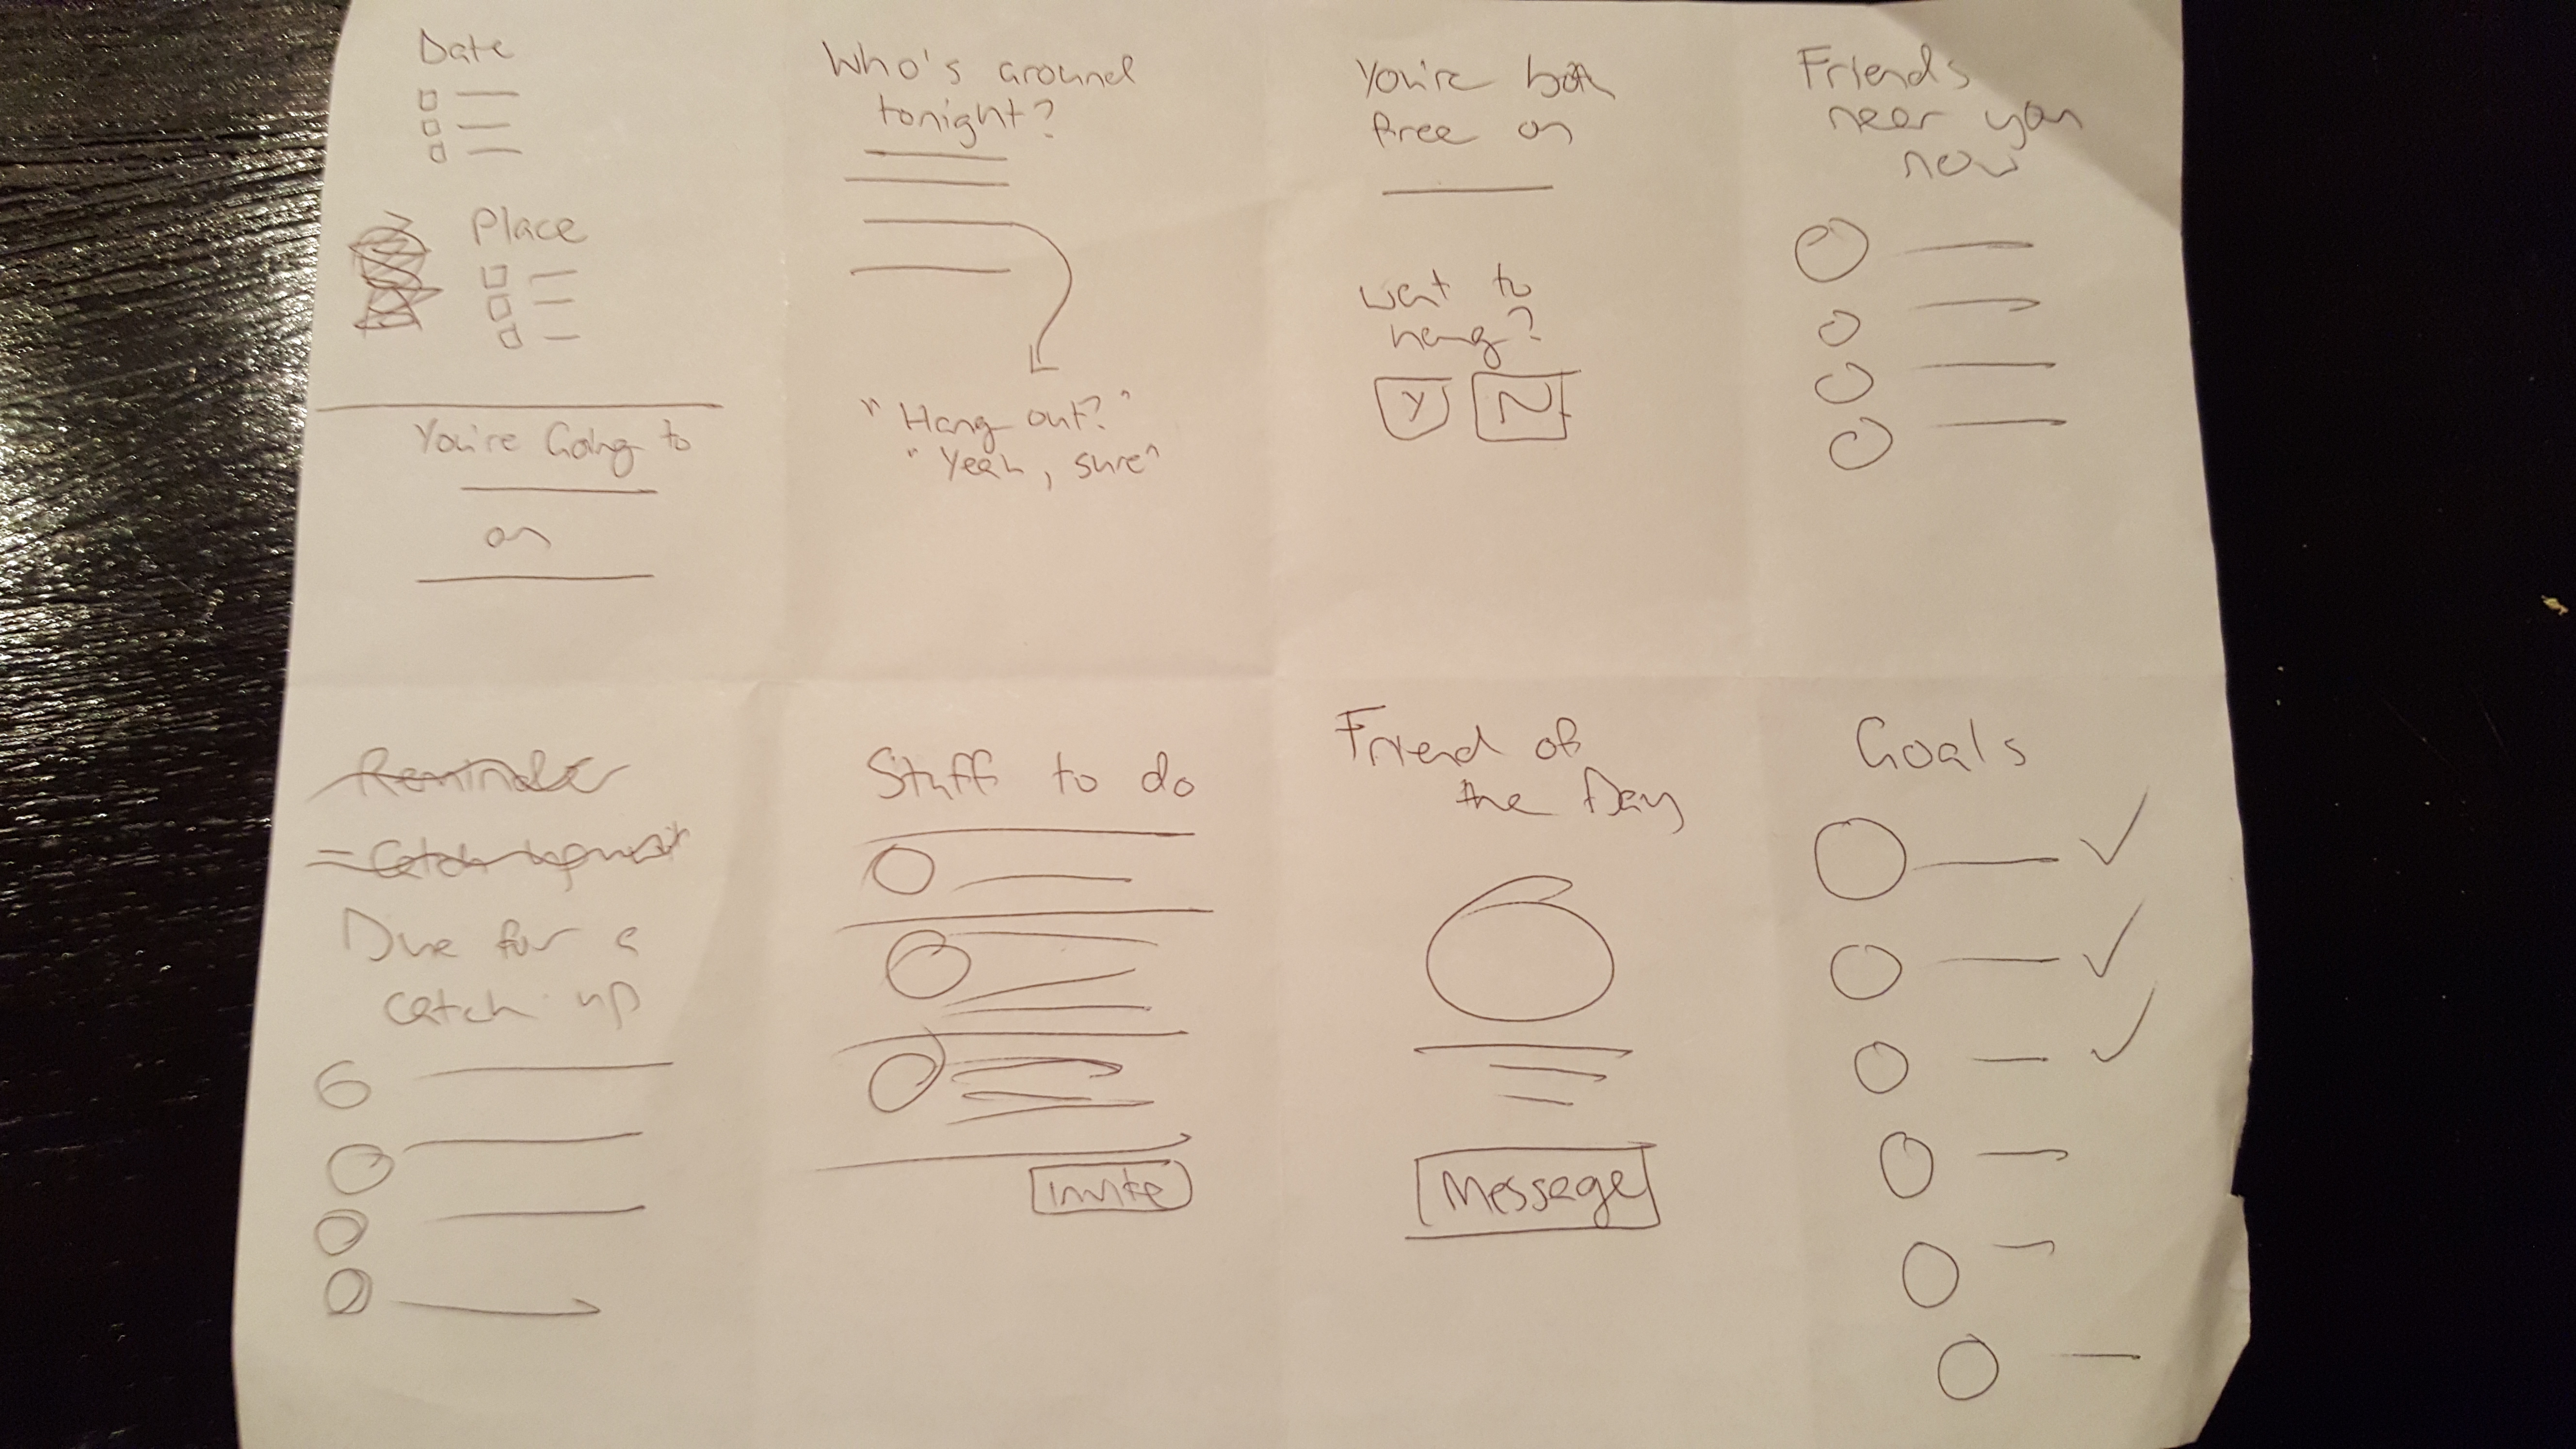 Date
Place
You're Going to
on
Who's around
tonight?
"Hang out?"
"Yeah, sure"
You're both
free on
Want to
hang?
Y N
Friends
near you
now
Reminder
Due for a
catch up
Stuff to do
Invite
Friend of
the Day
Message
Goals